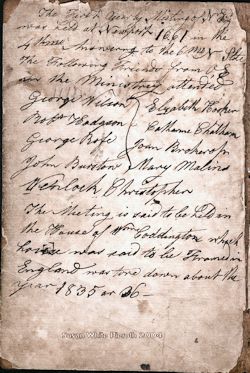 The First Yearly Meeting of
was held at Newport 1661 in the
4 Answering to the 6 Mo
The Following Friends from
in the Ministrey attended
George Wilson Elizabeth Hooton
Robt Hodgson Catharine Chatham
George Rofe Joan Brokesop
John Burstow Mary Malins
Wenlock Christopher
The Meeting is said to be held in
the House of Wm Coddington which
house was said to be Framed in
England was tore down about the
year 1835 or 36 —
Susan White Pieroth 2004